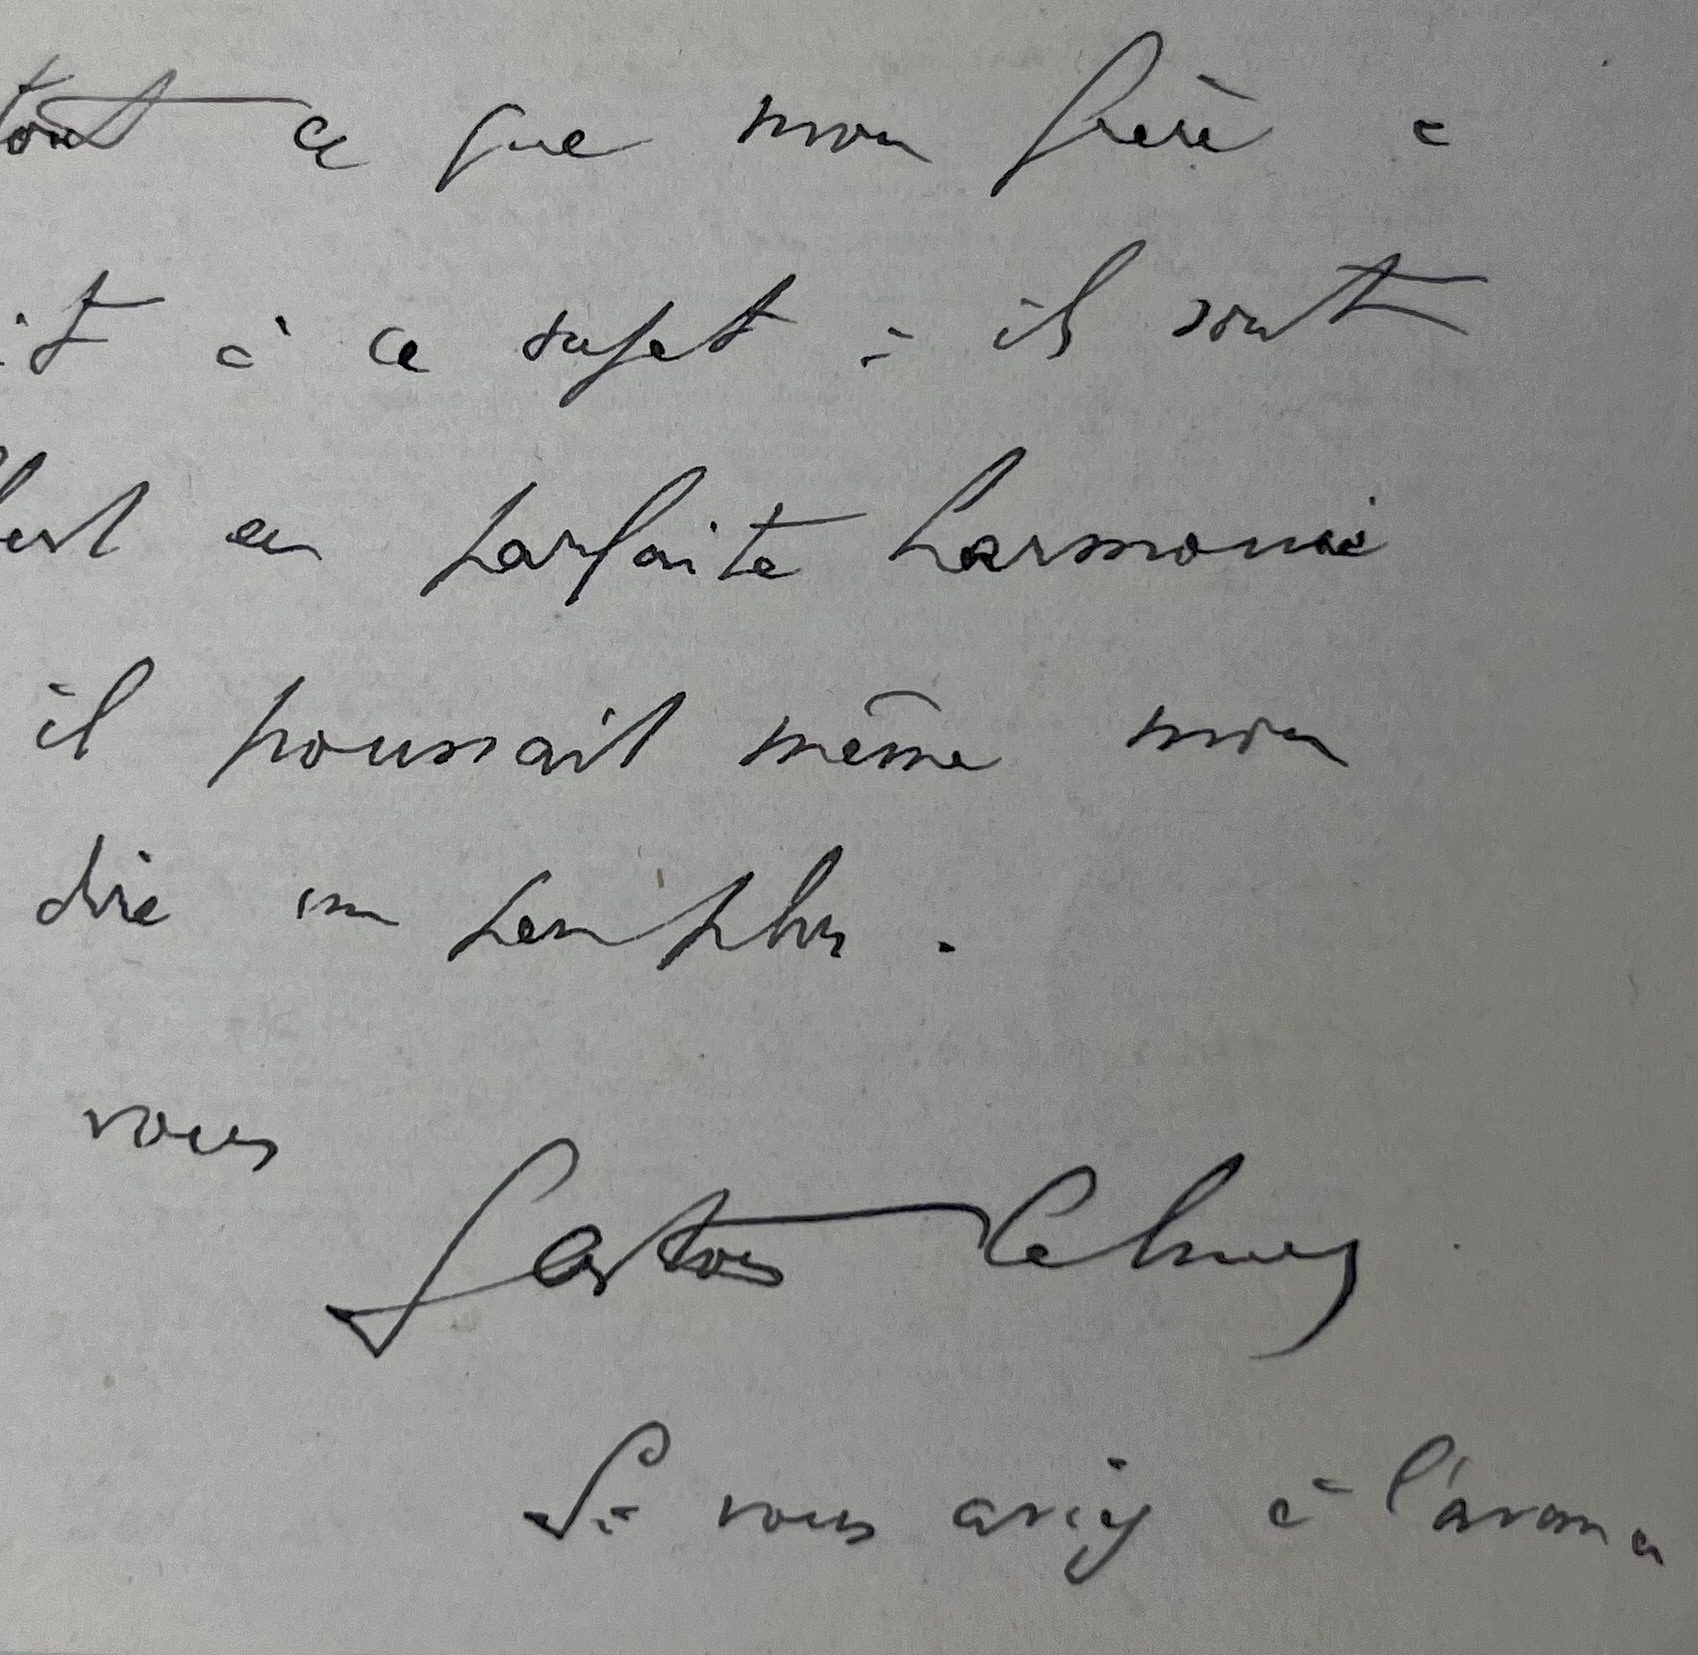 tout ce que mon frère a
it à ce sujet : ils sont
en parfaite harmonie
il poussait même mon
dire un peu plus .
vous
Gaston
Si vous aviez à l'avance